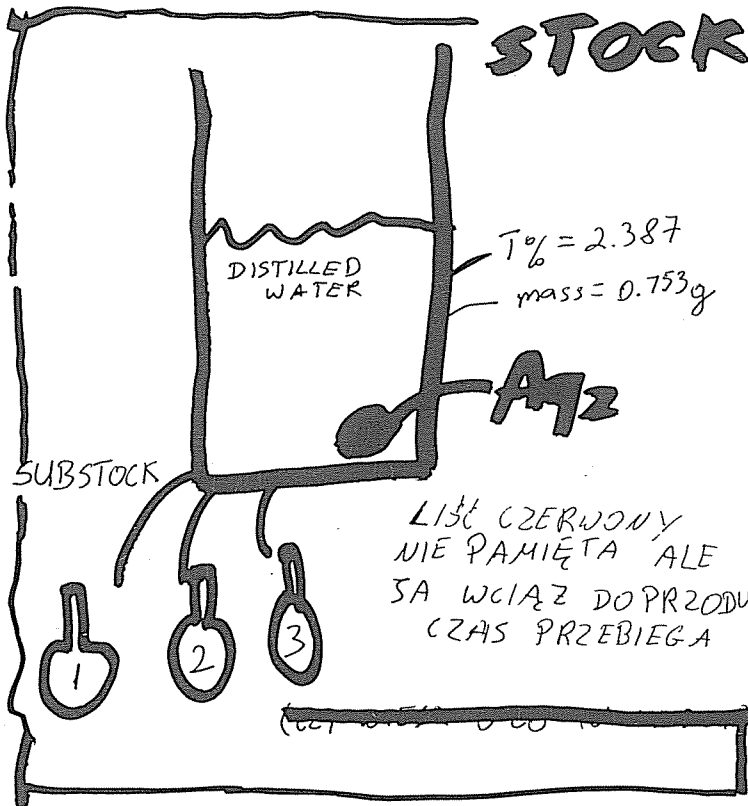 STOCK
DISTILLED
WATER
T% = 2.387
mass = 0.753g
SUBSTOCK
LIŚĆ CZERWONY
NIE PAMIĘTA ALE
SA WCIĄŻ DOPRZODU
CZAS PRZEBIEGA
1
2
3